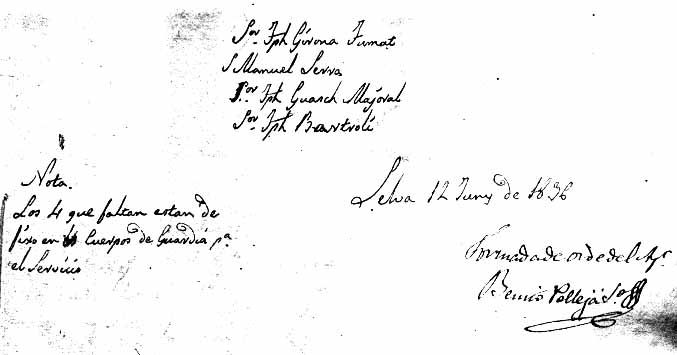 Sor. Jph Girona Fumat
S Manuel Serra
Sor. Jph Guasch Majoral
Sor. Jph Bartrolí
Nota.
Los 4 que faltan estan de
fixo en Cuerpos de Guardia pa.
el Servicio
Selva 12 Juny de 1836
Formada de orde del
Pellejá